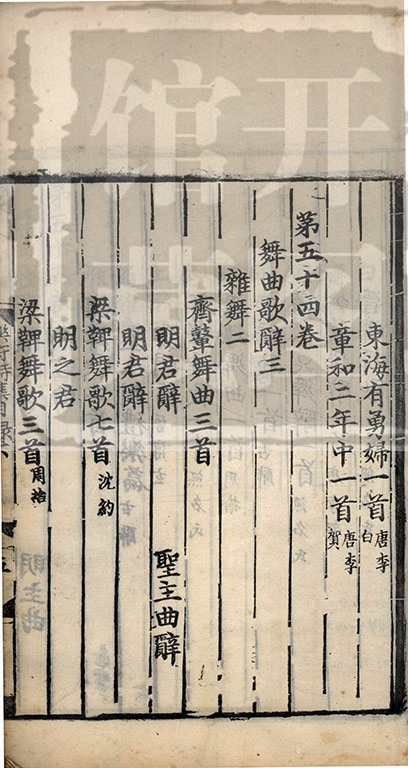 東海有勇婦一首 唐李白
章和二年中一首 唐李賀
第五十四卷
舞曲歌辭三
雜舞二
齊鞞舞曲三首
明君辭 聖主曲辭
明君辭
梁鞞舞歌七首 沈約
明之君
梁鞞舞歌三首 周捨